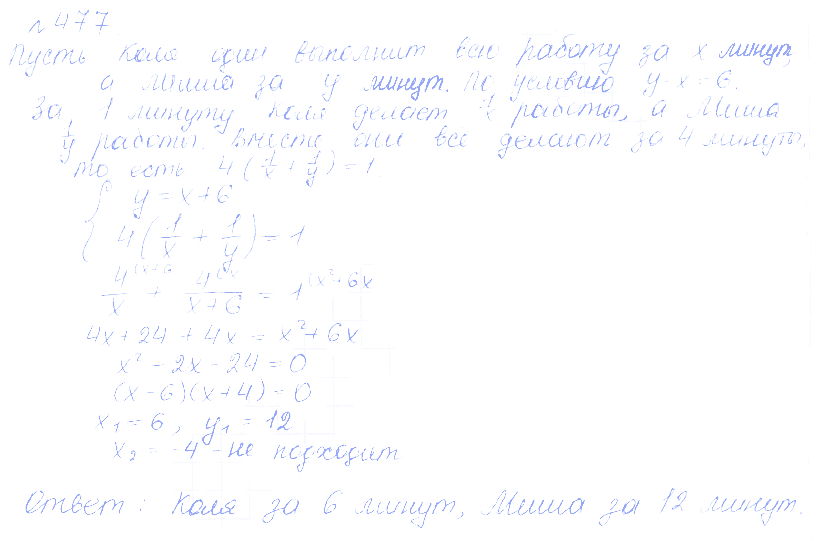 №477
Пусть Коля один выполнит всю работу за x минут,
а Миша за y минут. По условию y-x=6.
За 1 минуту Коля делает 1/x работы, а Миша
1/y работы. Вместе они все делают за 4 минуты,
то есть 4(1/x + 1/y)=1.
{ y=x+6
4(1/x + 1/y)=1
4^(x+6/x + 4^(x/x+6 = 1^(x²+6x
4x+24+4x=x²+6x
x²-2x-24=0
(x-6)(x+4)=0
x₁=6, y₁=12
x₂=-4-не подходит
Ответ: Коля за 6 минут, Миша за 12 минут.